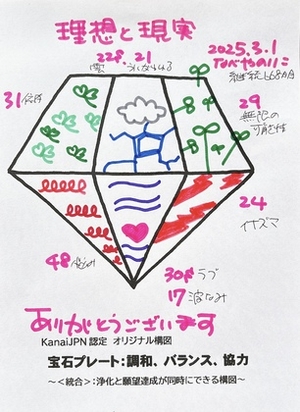 理想と現実
228.21
2025.3.1
なべやのりこ
31
29
無限の
可能性
24
イナズマ
48
30 ラブ
17 波なみ
ありがとうございます
KanaiJPN 認定 オリジナル構図
宝石プレート:調和、バランス、協力
～<統合>:浄化と願望達成が同時にできる構図～